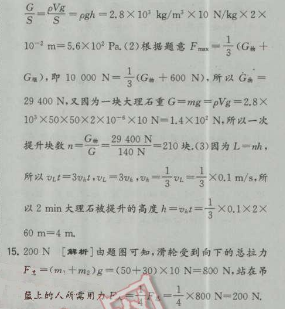 G/S = ρVg/S = ρgh = 2.8×10³ kg/m³×10 N/kg×2×
10⁻² m=5.6×10² Pa. (2)根据题意 Fmax = 1/3 (G物 +
G箱), 即 10 000 N = 1/3 (G物 + 600 N), 所以 G物 =
29 400 N, 又因为一块大理石重 G=mg=ρVg=2.8×
10³×50×50×2×10⁻⁶×10 N=1.4×10² N, 所以一次
提升块数 n = G物/G = 29 400 N/140 N = 210 块. (3)因为 L=nh,
所以 vLt=3vht, vL=3vh, vh = 1/3 vL = 1/3 ×0.1 m/s, 所
以 2 min 大理石被提升的高度 h=vht= 1/3 ×0.1×2×
60 m=4 m.
15. 200 N [解析]由题图可知, 滑轮受到向下的总拉力
F总=(m₁+m₂)g=(50+30)×10 N=800 N, 站在吊
篮上的人所需用力 F人 = 1/4 F总 = 1/4 ×800 N=200 N.